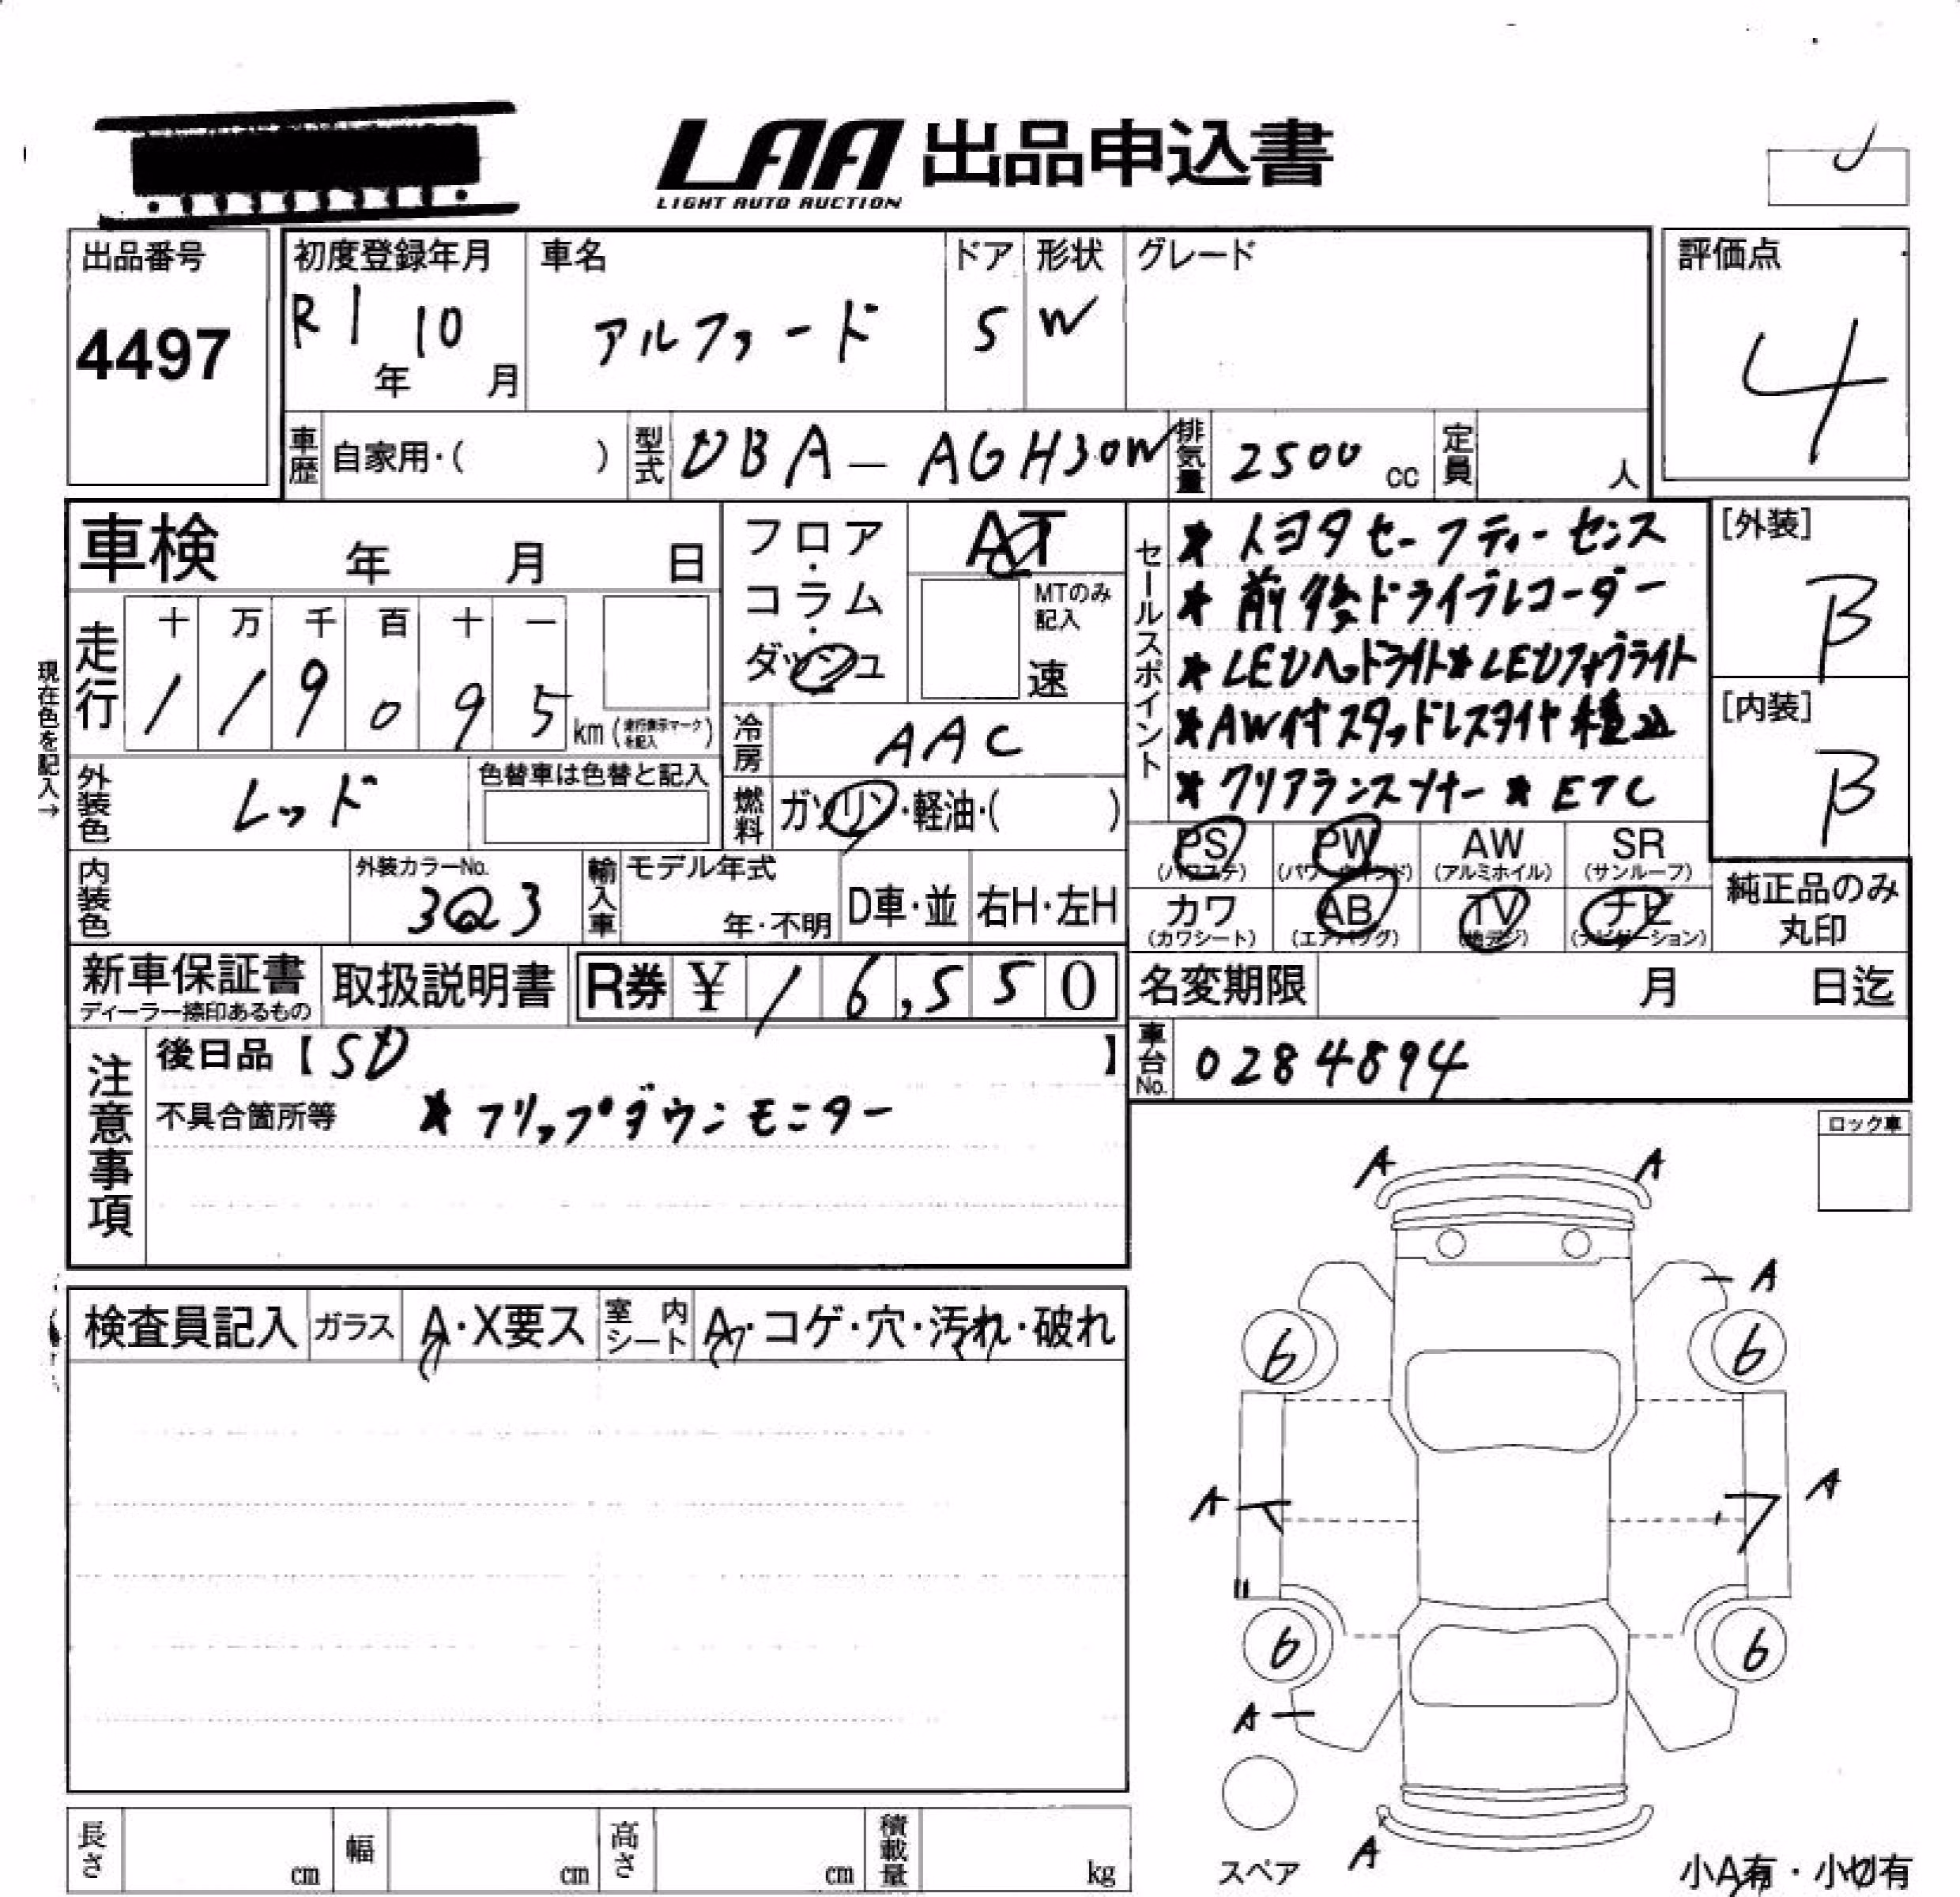 LAA 出品申込書
LIGHT AUTO AUCTION
出品番号
4497
初度登録年月
R1 年 10 月
車名
アルファード
ドア
5
形状
W
グレード
評価点
4
車歴 自家用・( )
型式 DBA-AGH30W
排気量 2500 cc
定員 人
車検 年 月 日
フロア・コラム・ダッシュ
AT
MTのみ記入
速
走行
十 万 千 百 十 一
1 1 9 0 9 5 km (走行表示マークを記入)
現在色を記入→
冷房 AAC
外装色 レッド
色替車は色替と記入
燃料 ガソリン・軽油・( )
セールスポイント
★トヨタセーフティーセンス
★前後ドライブレコーダー
★LEDヘッドライト★LEDフォグライト
★AW付スタッドレスタイヤ積込
★クリアランスソナー ★ETC
[外装]
B
[内装]
B
PS (パワステ)
PW (パワーウインド)
AW (アルミホイル)
SR (サンルーフ)
カワ (カワシート)
AB (エアバッグ)
TV (地デジ)
ナビ (ナビゲーション)
純正品のみ丸印
内装色
外装カラーNo.
3Q3
輸入車
モデル年式
年・不明
D車・並
右H・左H
新車保証書
ディーラー捺印あるもの
取扱説明書
R券 ¥ 16,550
名変期限 月 日迄
注意事項
後日品【SD】
不具合箇所等 ★フリップダウンモニター
車台No. 0284894
ロック車
検査員記入
ガラス A・X要ス
室内シート A・コゲ・穴・汚れ・破れ
A A
A
6 6
A A
6 6
A
A
スペア
小A有・小凹有
長さ cm
幅 cm
高さ cm
積載量 kg